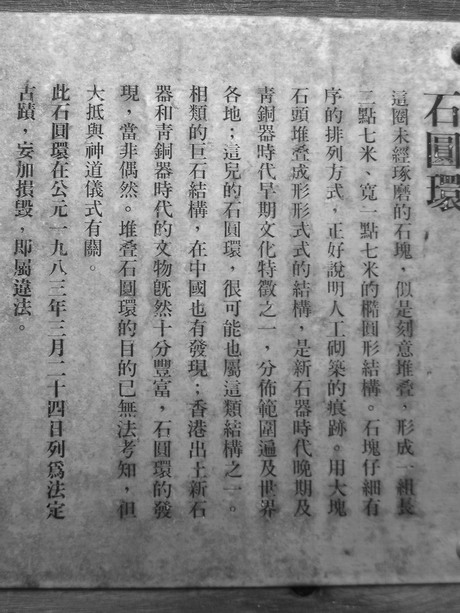 石圓環
這圈未經琢磨的石塊，似是刻意堆叠，形成一組長
二點七米、寬一點七米的橢圓形結構。石塊仔細有
序的排列方式，正好說明人工砌築的痕跡。用大塊
石頭堆叠成形形式式的結構，是新石器時代晚期及
青銅器時代早期文化特徵之一，分佈範圍遍及世界
各地；這兒的石圓環，很可能也屬這類結構之一。
相類的巨石結構，在中國也有發現；香港出土新石
器和青銅器時代的文物旣然十分豐富，石圓環的發
現，當非偶然。堆叠石圓環的目的已無法考知，但
大抵與神道儀式有關。
此石圓環在公元一九八三年三月二十四日列爲法定
古蹟，妄加損毀，即屬違法。